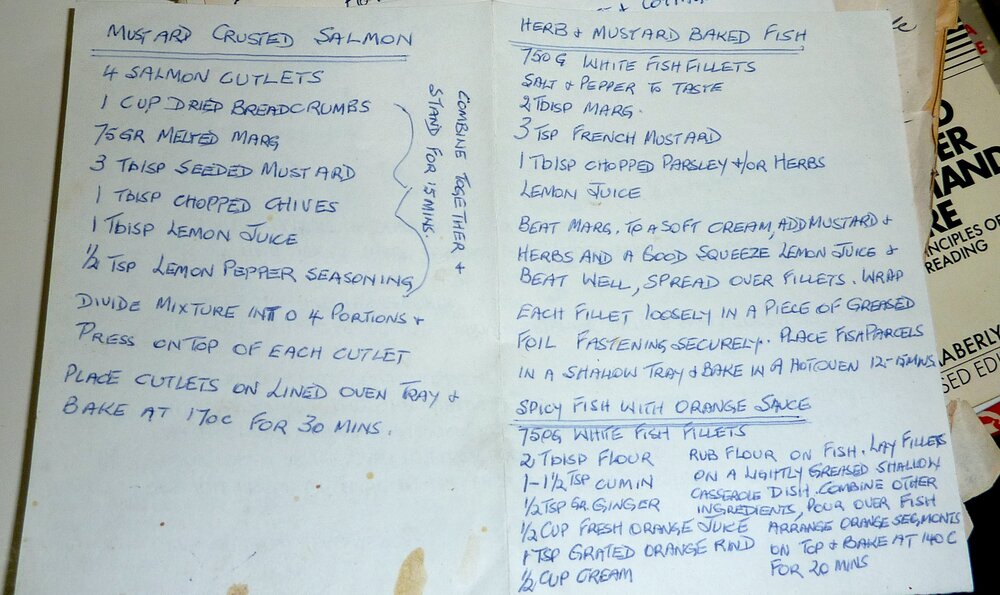 MUSTARD CRUSTED SALMON
4 SALMON CUTLETS
1 CUP DRIED BREADCRUMBS
75GR MELTED MARG
3 TBLSP SEEDED MUSTARD
1 TBLSP CHOPPED CHIVES
1 TBLSP LEMON JUICE
1/2 TSP LEMON PEPPER SEASONING
COMBINE TOGETHER &
STAND FOR 15 MINS.
DIVIDE MIXTURE INTO 4 PORTIONS &
PRESS ON TOP OF EACH CUTLET
PLACE CUTLETS ON LINED OVEN TRAY &
BAKE AT 170C FOR 30 MINS.
HERB & MUSTARD BAKED FISH
750G WHITE FISH FILLETS
SALT & PEPPER TO TASTE
2 TBLSP MARG.
3 TSP FRENCH MUSTARD
1 TBLSP CHOPPED PARSLEY &/OR HERBS
LEMON JUICE
BEAT MARG. TO A SOFT CREAM, ADD MUSTARD &
HERBS AND A GOOD SQUEEZE LEMON JUICE &
BEAT WELL, SPREAD OVER FILLETS. WRAP
EACH FILLET LOOSELY IN A PIECE OF GREASED
FOIL FASTENING SECURELY. PLACE FISH PARCELS
IN A SHALLOW TRAY & BAKE IN A HOT OVEN 12-15 MINS
SPICY FISH WITH ORANGE SAUCE
750G WHITE FISH FILLETS
2 TBLSP FLOUR
1-1 1/2 TSP CUMIN
1/2 TSP GR. GINGER
1/2 CUP FRESH ORANGE JUICE
1 TSP GRATED ORANGE RIND
1/2 CUP CREAM
RUB FLOUR ON FISH. LAY FILLETS
ON A LIGHTLY GREASED SHALLOW
CASSEROLE DISH. COMBINE OTHER
INGREDIENTS, POUR OVER FISH
ARRANGE ORANGE SEGMENTS
ON TOP & BAKE AT 140C
FOR 20 MINS
INCIPLES OF
READING